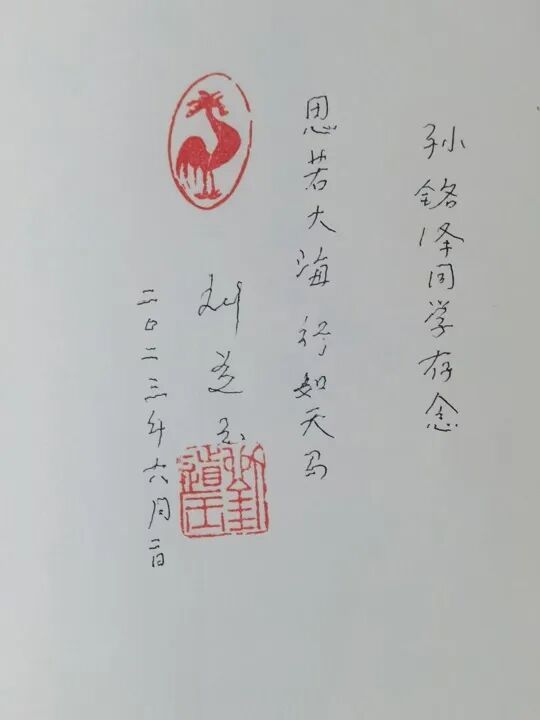 孙铭泽同学存念
思若大海 行如天马
刘道玉
二〇二三年六月二日
刘道玉